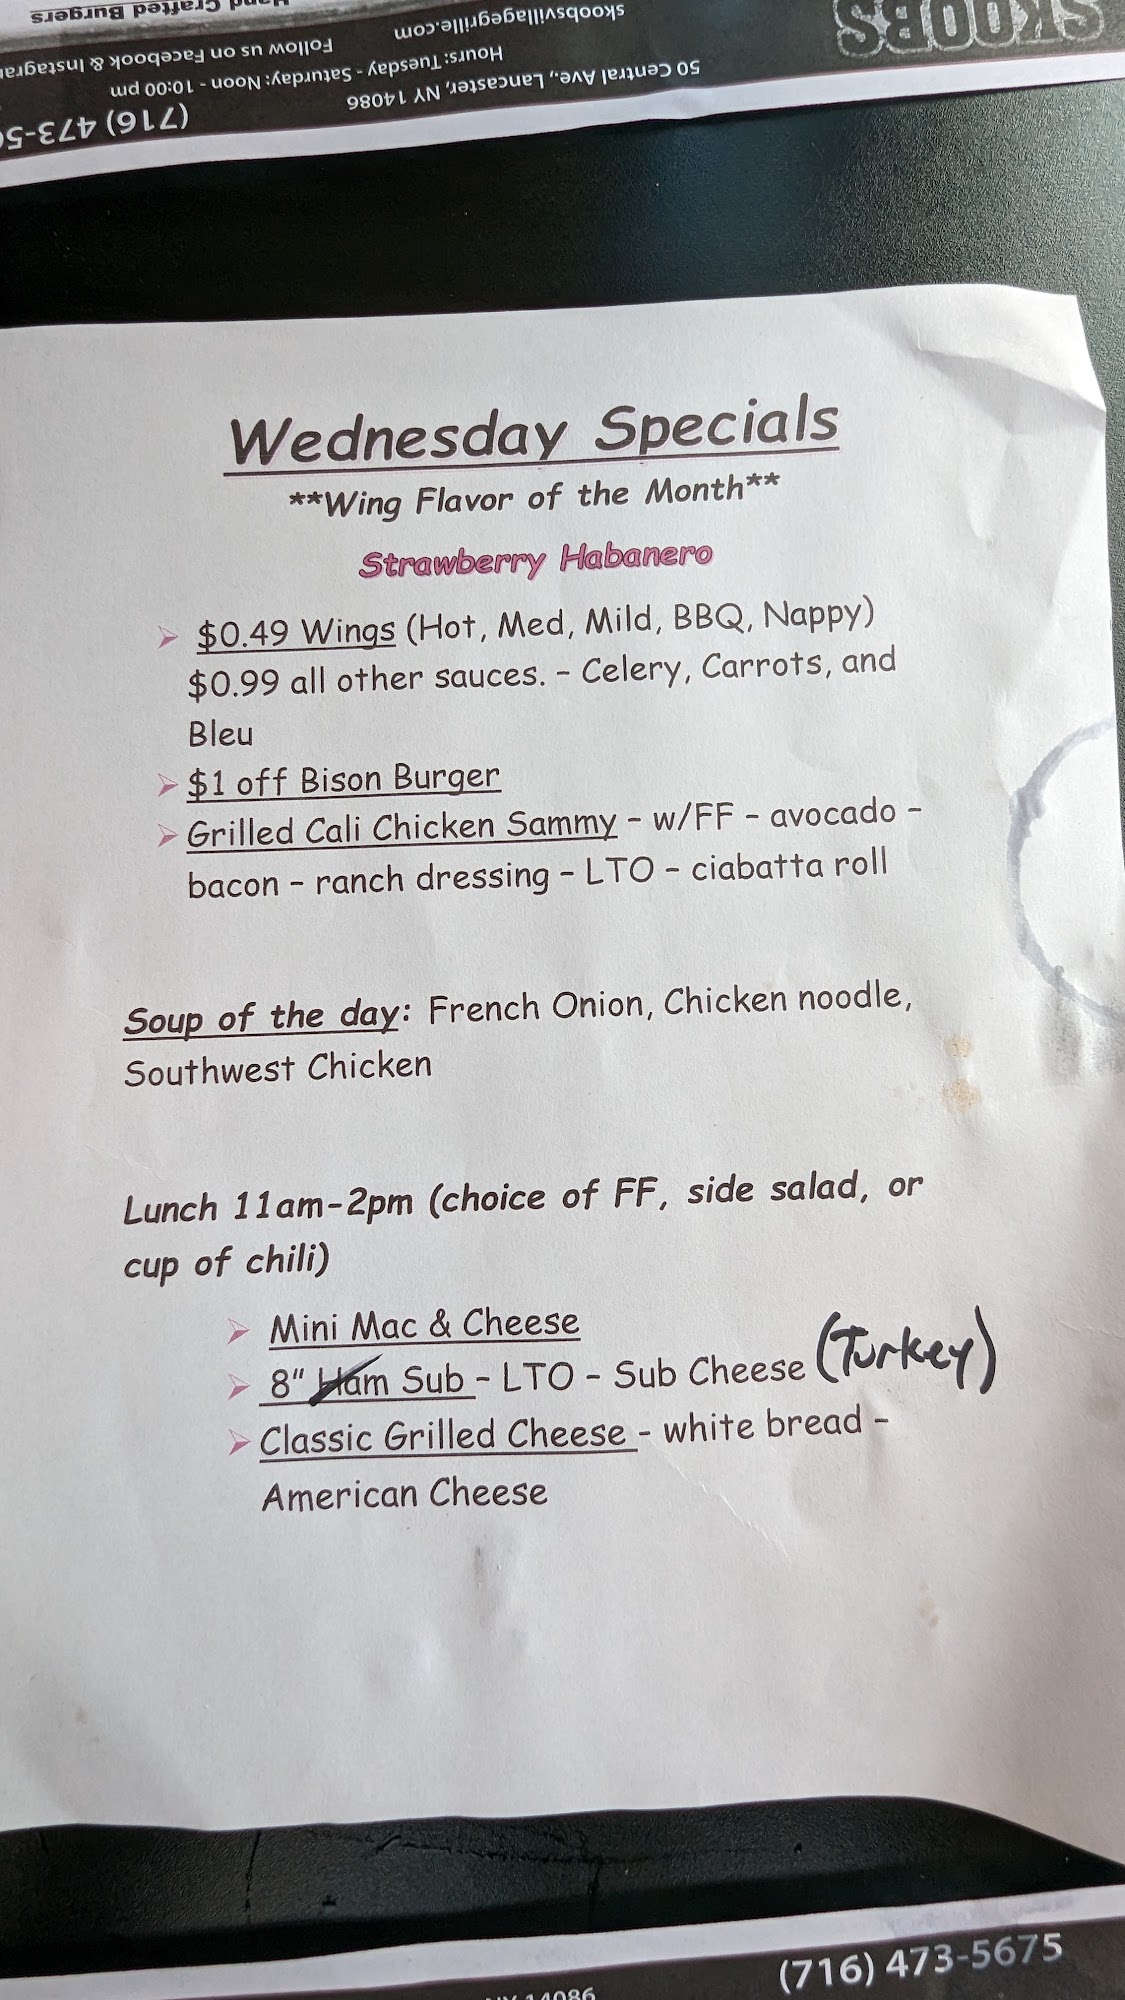 Hand Crafted Burgers
SKOOBS
skoobsvillagegrille.com
Follow us on Facebook &
Hours: Tuesday - Saturday: Noon - 10:00 pm
50 Central Ave., Lancaster, NY 14086
(716) 473-5
Wednesday Specials
**Wing Flavor of the Month**
Strawberry Habanero
➢ $0.49 Wings (Hot, Med, Mild, BBQ, Nappy)
$0.99 all other sauces. - Celery, Carrots, and
Bleu
➢ $1 off Bison Burger
➢ Grilled Cali Chicken Sammy - w/FF - avocado -
bacon - ranch dressing - LTO - ciabatta roll
Soup of the day: French Onion, Chicken noodle,
Southwest Chicken
Lunch 11am-2pm (choice of FF, side salad, or
cup of chili)
➢ Mini Mac & Cheese
➢ 8" Ham Sub - LTO - Sub Cheese (Turkey)
➢ Classic Grilled Cheese - white bread -
American Cheese
(716) 473-5675
NY 14086